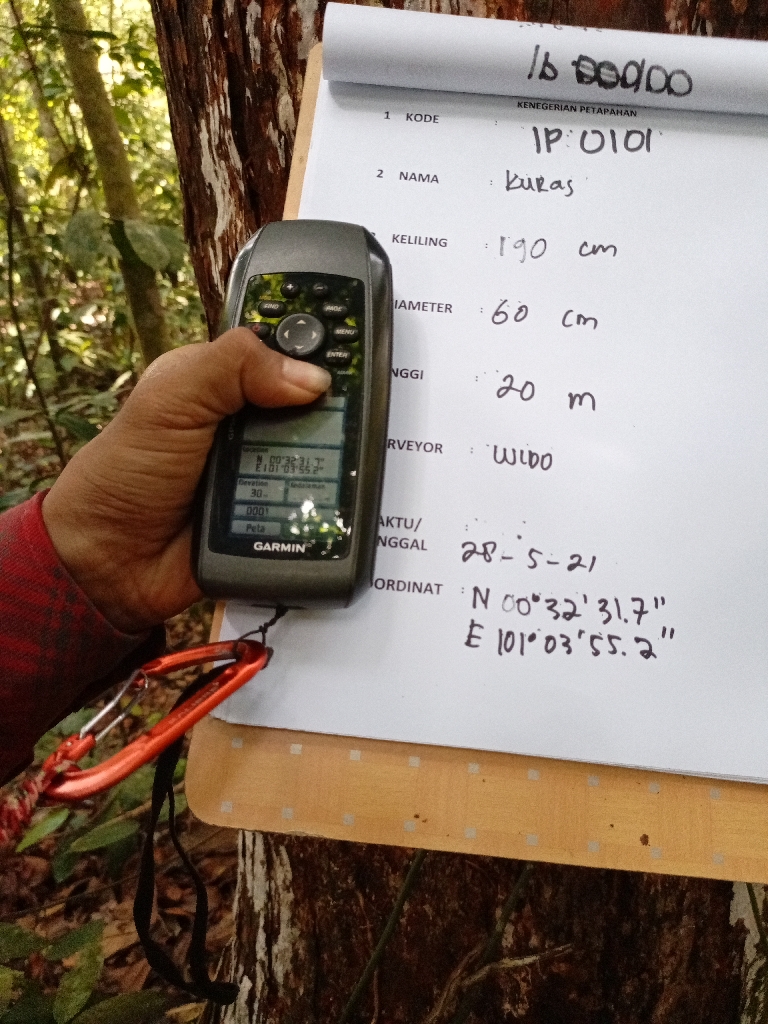 KENEGERIAN PETAPAHAN
1 KODE : IP.0101
2 NAMA : KURAS
KELILING : 190 cm
IAMETER : 60 cm
NGGI : 20 m
RVEYOR : WIDO
AKTU/
NGGAL : 28-5-21
ORDINAT : N 00°32'31.7"
E 101°03'55.2"
FIND
PAGE
MENU
ENTER
N 00°32'31.7"
E101°03'55.2"
Elevation
30
0001
Peta
GARMIN